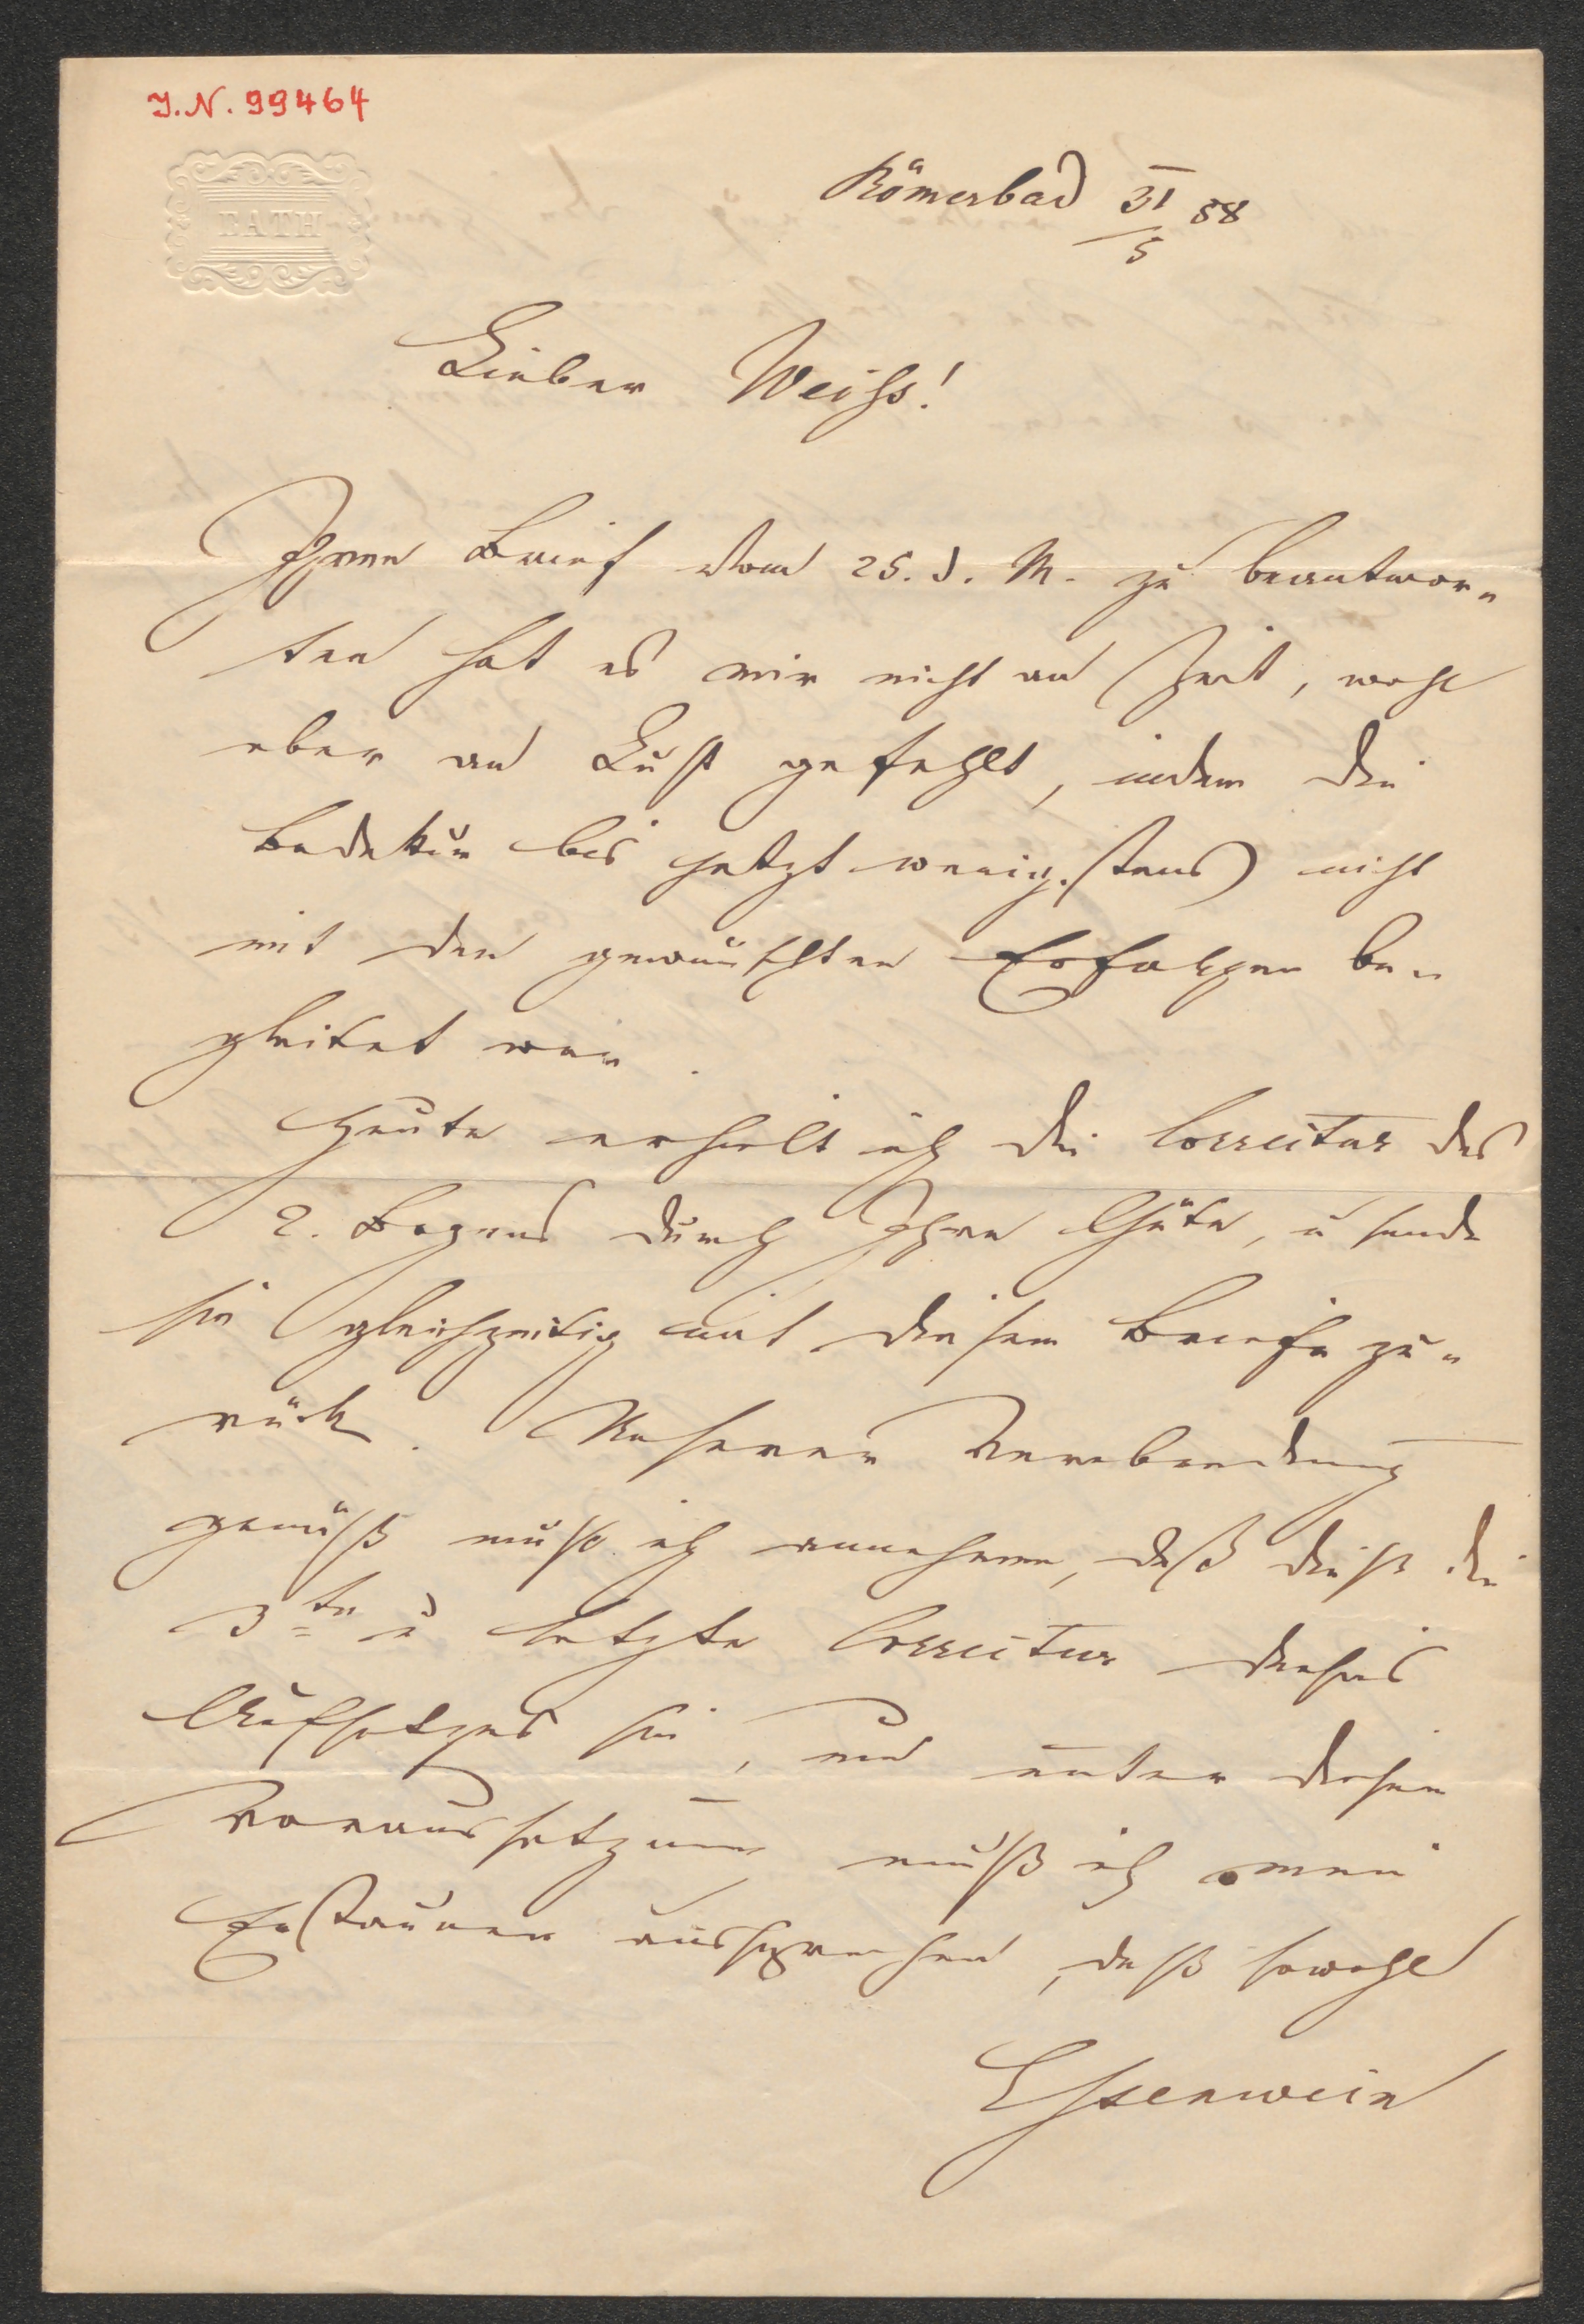 J.N. 99464
BATH
Römerbad 31/5 58
Lieber Weiss!
Ihren Brief vom 25. d. M. zu beantwor„
ten hat es mir nicht an Zeit, wohl
aber an Lust gefehlt, indem die
Badekur bis jetzt wenigstens) nicht
mit den gewünschten Erfolgen be„
gleitet war.
Heute erhielt ich die Correctur des
2. Bogens durch Ihre Güte, u sende
sie gleichzeitig mit diesem Briefe zu„
rück. Unserer Verabredung
gemäß muß ich annehmen, daß dieß die
3te u letzte Correctur dieses
Aufsatzes sei, und unter dieser
Voraussetzung muß ich mein
Erstaunen aussprechen, daß sowohl
Essenwein